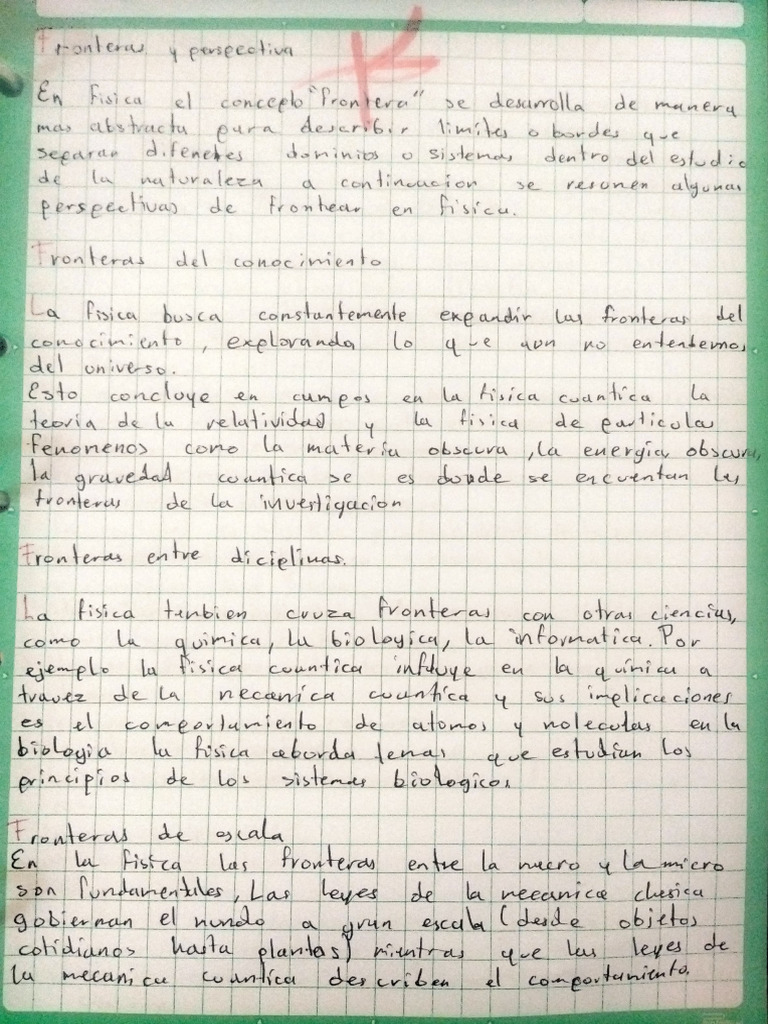 Fronteras y perspectiva
En Fisica el concepto "frontera" se desarrolla de manera
mas abstracta para describir limites o bordes que
separan difenetes dominios o sistemas dentro del estudio
de la naturaleza a continuacion se resumen algunas
perspectivas de frontear en fisica.
Fronteras del conocimiento
La fisica busca constantemente expandir las fronteras del
conocimiento, exploranda lo que aun no entendemos
del universo.
Esto concluye en campos en la fisica cuantica la
teoria de la relatividad y la fisica de particulas
fenomenos como la materia obscura, la energia obscura,
la gravedad cuantica se es donde se encuentan las
fronteras de la investigacion
Fronteras entre diciplinas.
La fisica tanbien cruza fronteras con otras ciencias,
como la quimica, la biologica, la informatica. Por
ejemplo la fisica cuantica influye en la quinica a
travez de la necanica cuantica y sus implicaciones
es el comportamiento de atomos y noleculas en la
biologia la fisica aborda temas que estudian los
principios de los sistemas biologicos
Fronteras de escala
En la fisica las fronteras entre la macro y la micro
son fundamentales, Las leyes de la mecanica clasica
gobiernan el nundo a gran escala (desde objetos
cotidianos hasta plantas) mientras que las leyes de
la mecanica cuantica describen el comportamiento.